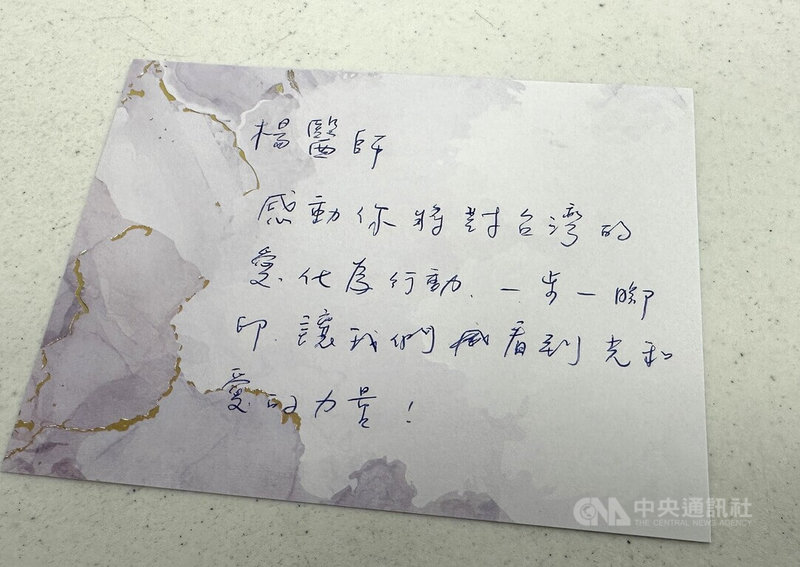 楊醫師
感動你將對台灣的
愛化為行動. 一步一腳
印. 讓我們 看到光和
愛的力量!
CNA 中央通訊社
THE CENTRAL NEWS AGENCY